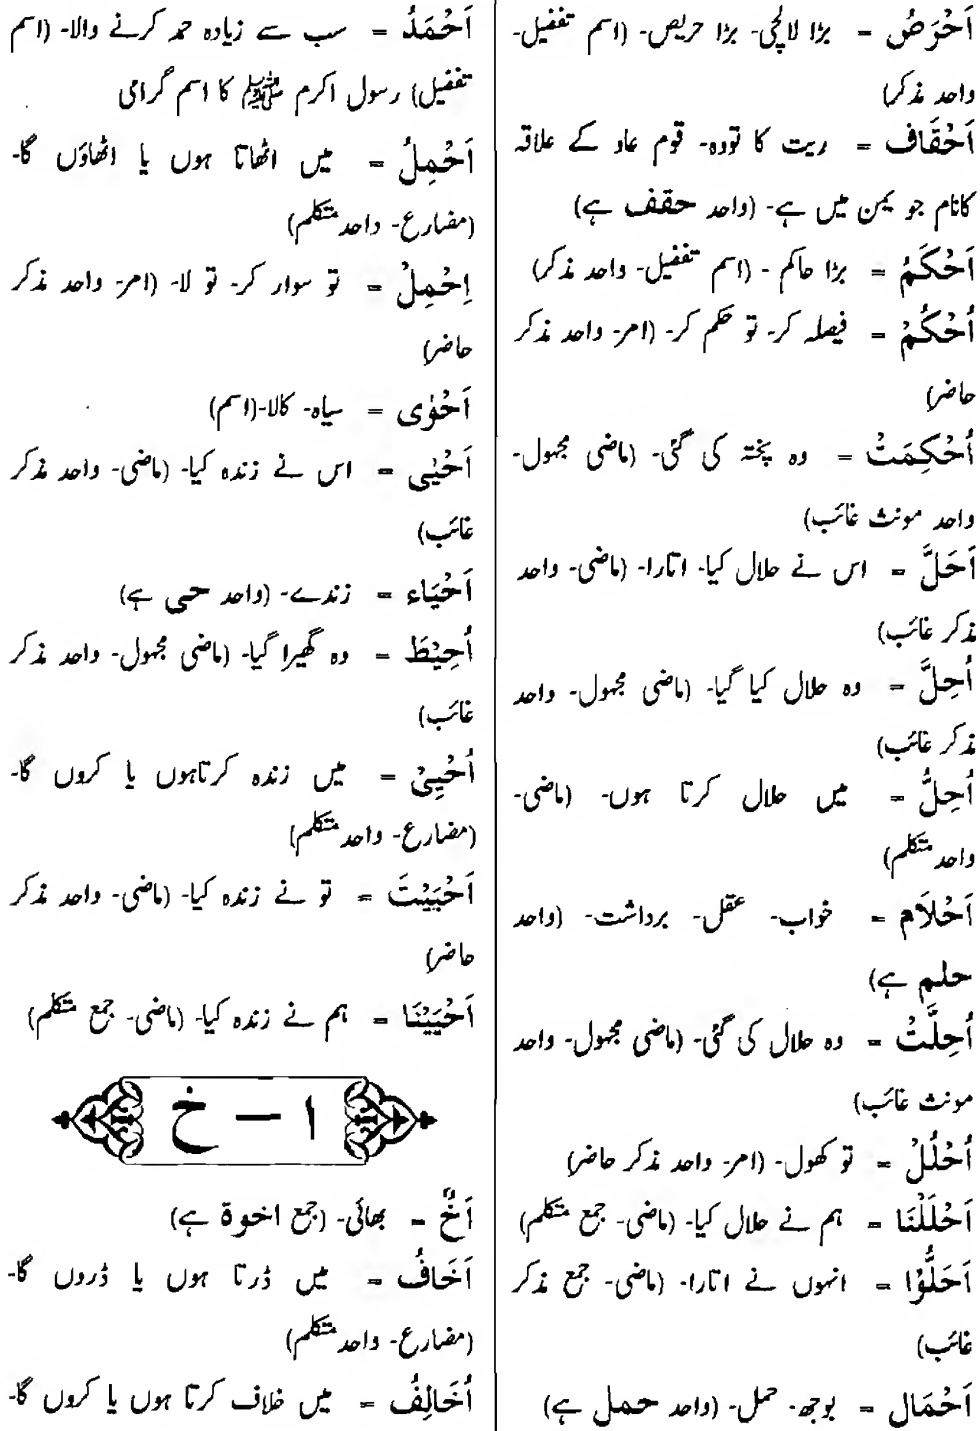 اَحْرَصُ = بڑا لالچی- بڑا حریص- (اسم تفضیل-
واحد مذکر)
اَحْقَاف = ریت کا تودہ- قوم عاد کے علاقہ
کانام جو یمن میں ہے- (واحد حقف ہے)
اَحْكَمُ = بڑا حاکم - (اسم تفضیل- واحد مذکر)
اُحْكُمْ = فیصلہ کر- تو حکم کر- (امر- واحد مذکر
حاضر)
اُحْكِمَتْ = وہ پختہ کی گئی- (ماضی مجہول-
واحد مونث غائب)
اَحَلَّ = اس نے حلال کیا- اتارا- (ماضی- واحد
مذکر غائب)
اُحِلَّ = وہ حلال کیا گیا- (ماضی مجہول- واحد
مذکر غائب)
اُحِلُّ = میں حلال کرتا ہوں- (ماضی-
واحد متکلم)
اَحْلَام = خواب- عقل- برداشت- (واحد
حلم ہے)
اُحِلَّتْ = وہ حلال کی گئی- (ماضی مجہول- واحد
مونث غائب)
اُحْلُلْ = تو کھول- (امر- واحد مذکر حاضر)
اَحْلَلْنَا = ہم نے حلال کیا- (ماضی- جمع متکلم)
اَحَلُّوْا = انہوں نے اتارا- (ماضی- جمع مذکر
غائب)
اَحْمَال = بوجھ- حمل- (واحد حمل ہے)
اَحْمَدُ = سب سے زیادہ حمد کرنے والا- (اسم
تفضیل) رسول اکرم ﷺ کا اسم گرامی
اَحْمِلُ = میں اٹھاتا ہوں یا اٹھاؤں گا-
(مضارع- واحد متکلم)
اِحْمِلْ = تو سوار کر- تو لا- (امر- واحد مذکر
حاضر)
اَحْوٰى = سیاہ- کالا-(اسم)
اَحْيٰى = اس نے زندہ کیا- (ماضی- واحد مذکر
غائب)
اَحْيَاء = زندے- (واحد حی ہے)
اُحِيْطَ = وہ گھیرا گیا- (ماضی مجہول- واحد مذکر
غائب)
اُحْيِىْ = میں زندہ کرتاہوں یا کروں گا-
(مضارع- واحد متکلم)
اَحْيَيْتَ = تو نے زندہ کیا- (ماضی- واحد مذکر
حاضر)
اَحْيَيْنَا = ہم نے زندہ کیا- (ماضی- جمع متکلم)
ا — خ
اَخٌ = بھائی- (جمع اخوة ہے)
اَخَافُ = میں ڈرتا ہوں یا ڈروں گا-
(مضارع- واحد متکلم)
اُخَالِفُ = میں خلاف کرتا ہوں یا کروں گا-